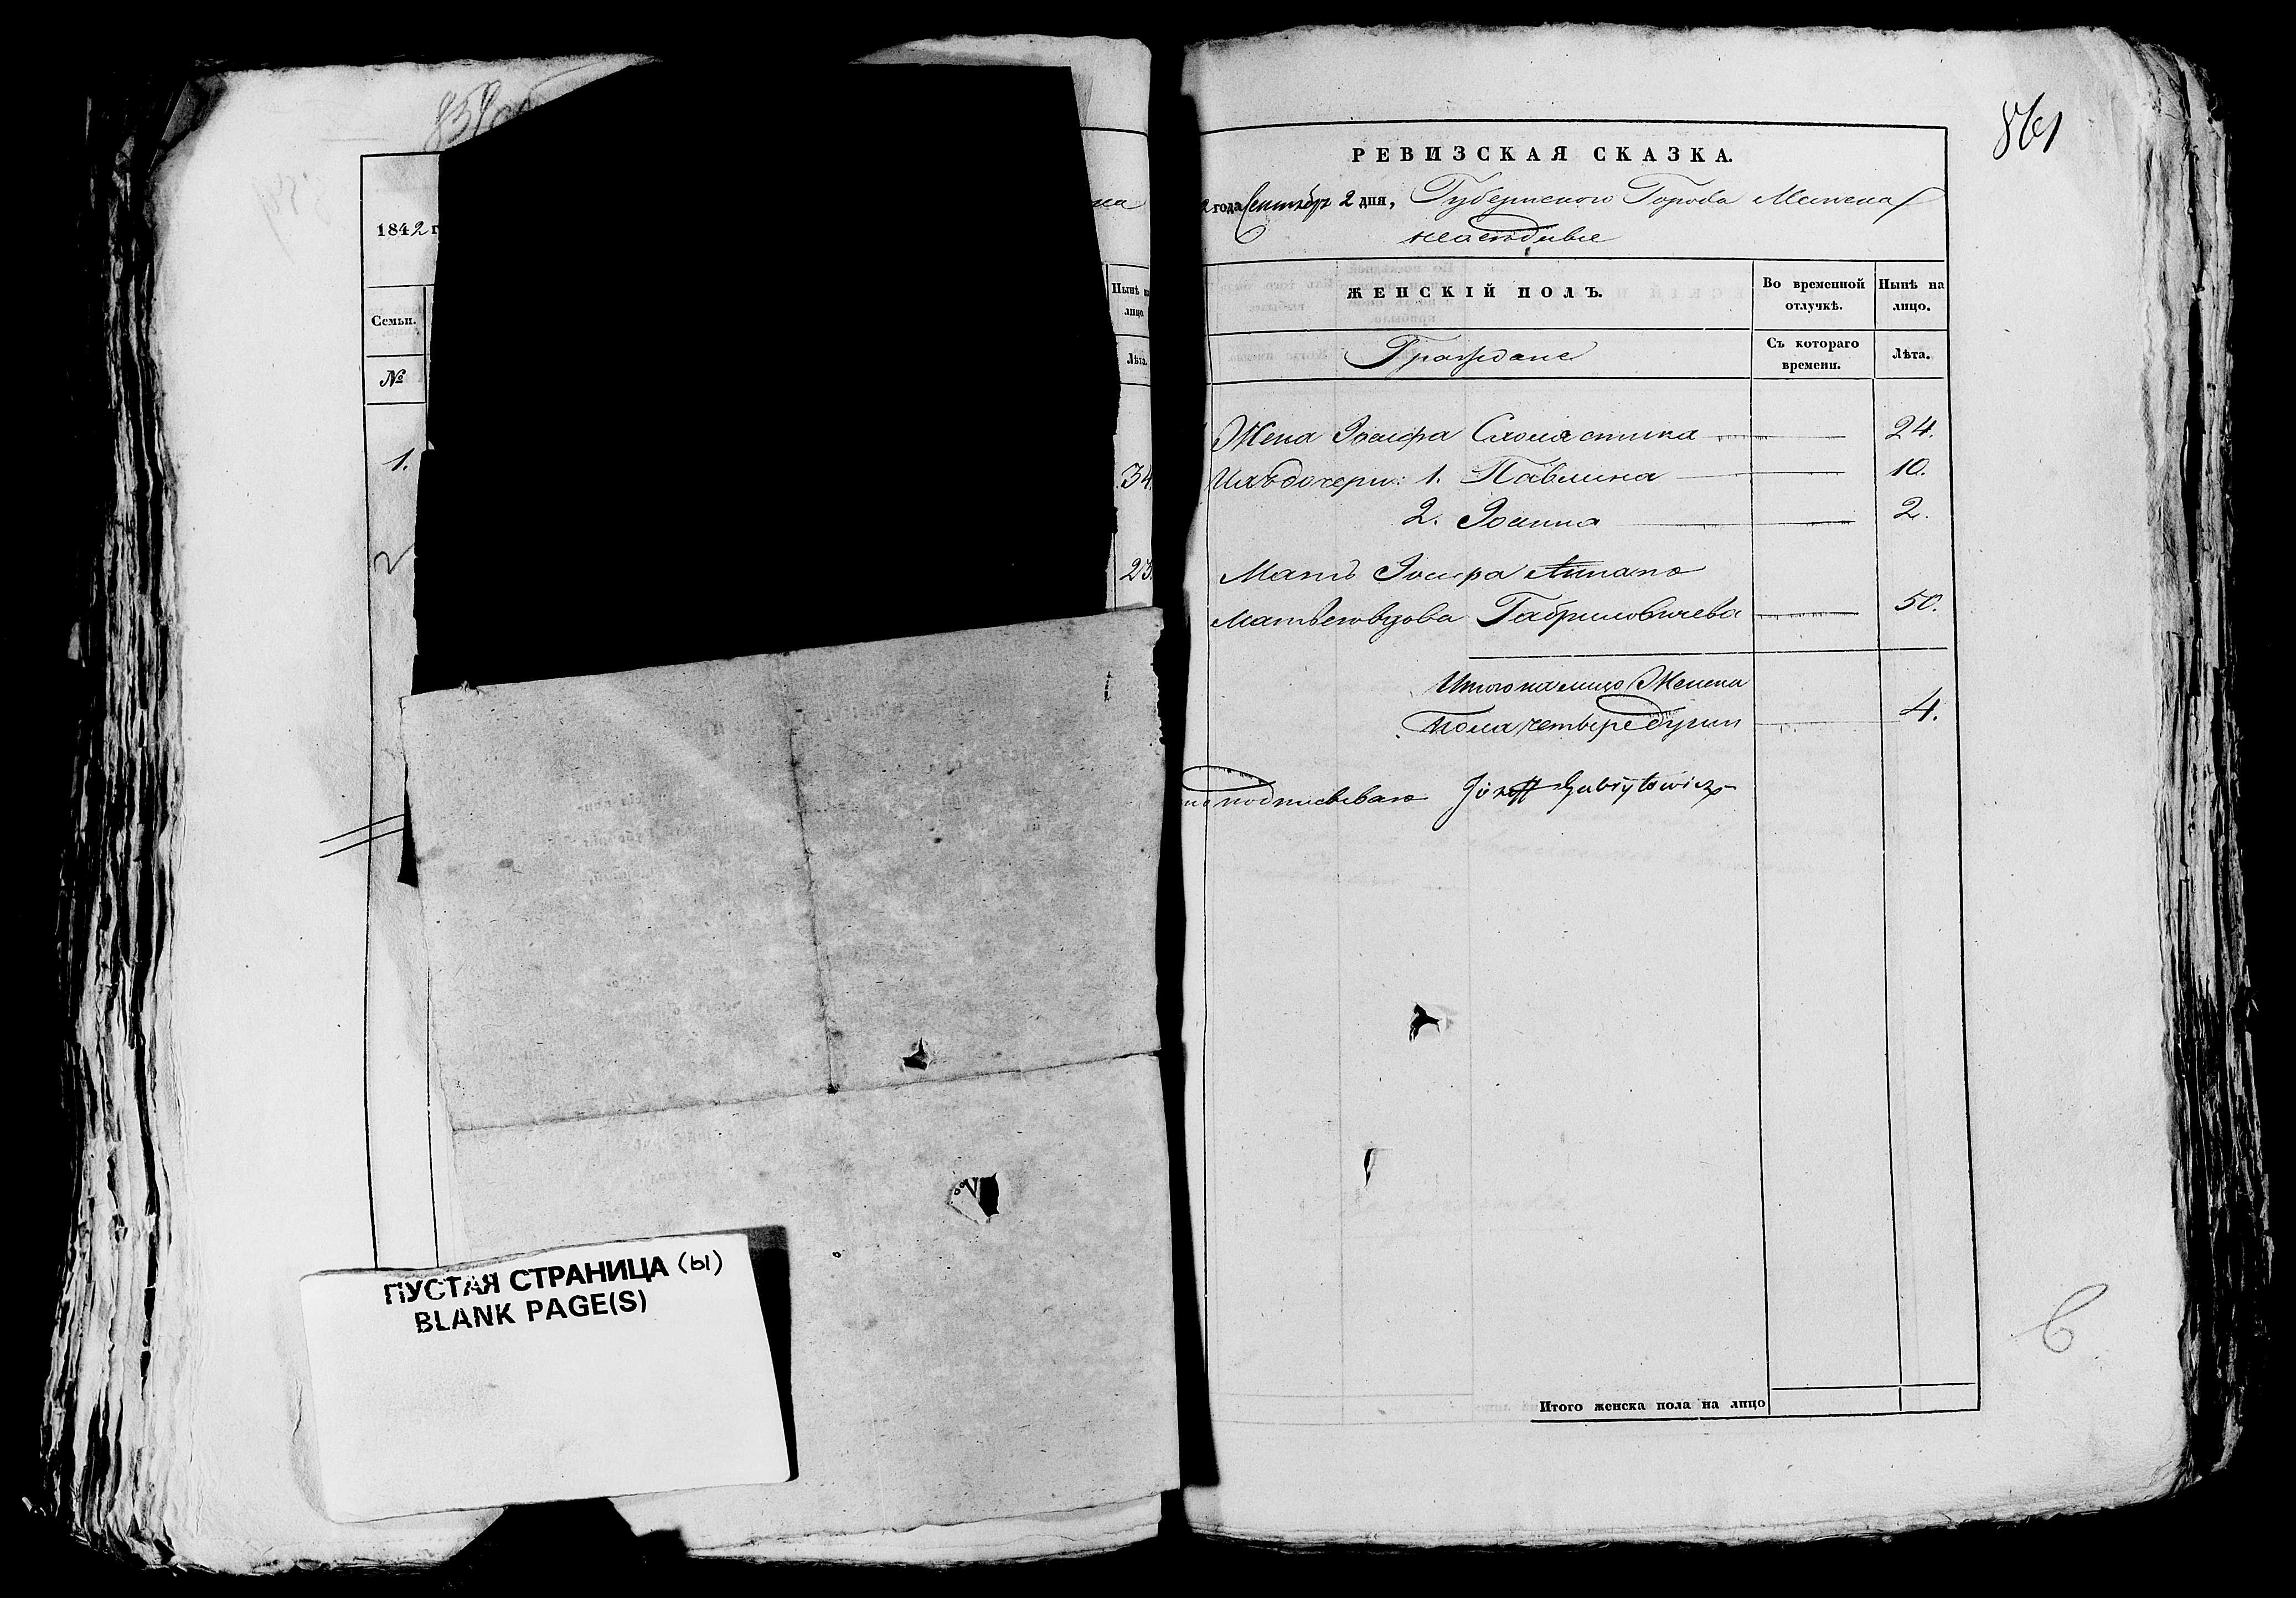 859об
1842 г
Семьи.
№
1.
2
на
Нынѣ на
лицо.
Лѣта.
34.
23.
ПУСТАЯ СТРАНИЦА (ы)
BLANK PAGE(S)
861
РЕВИЗСКАЯ СКАЗКА.
2 года Сентября 2 дня, Губернского Города Минска
неоседлые
ЖЕНСКІЙ ПОЛЪ.
Во временной
отлучкѣ.
Нынѣ на
лицо.
Граждане
Съ котораго
времени.
Лѣта.
Жена Іосифа Схоластика 24.
Ихъ дочери: 1. Павлина 10.
2. Іоанна 2.
Мать Іосифа
Матвеевдова Габриловичева 50.
Итого на лицо Женска
пола четыре души 4.
подписываю Józeff Gabryłowicz
Итого женска пола на лицо